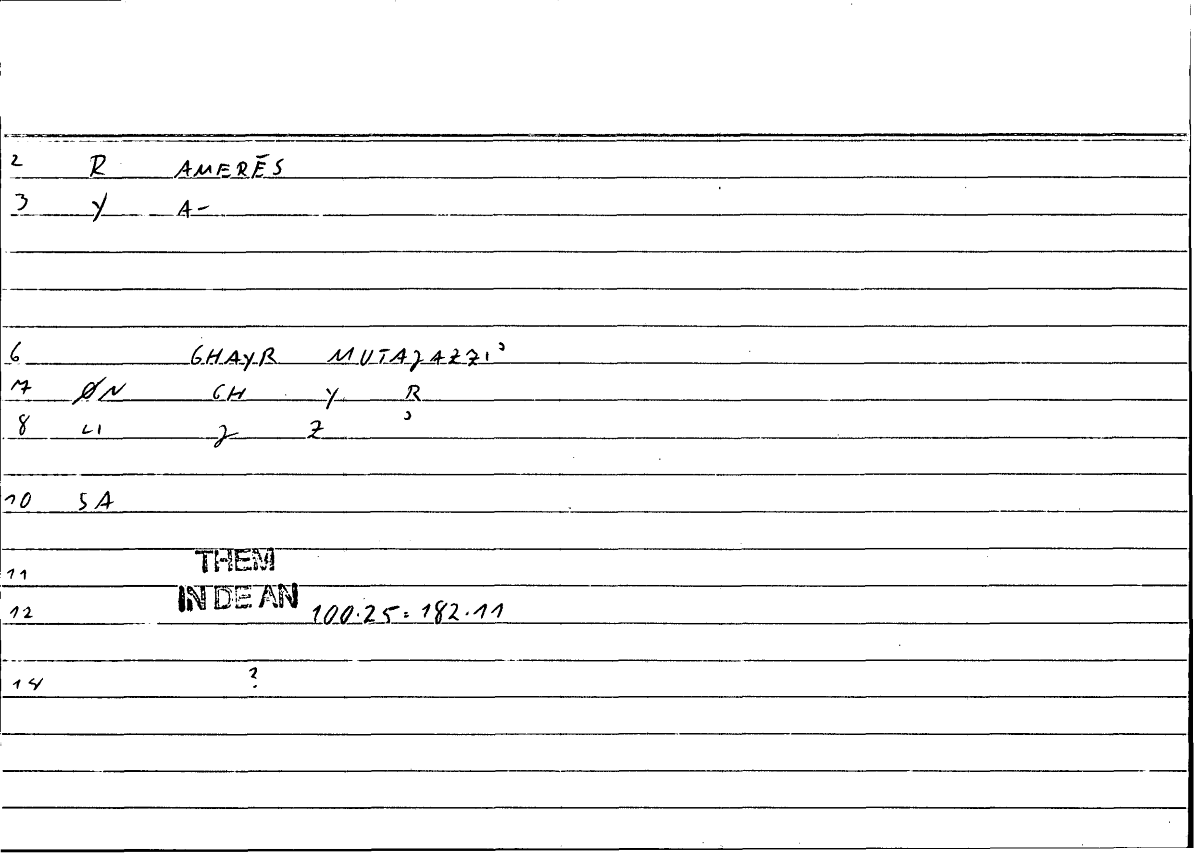 2 R AMERĒS
3 Y A-
6 GHAYR MUTAJAZZI'
7 ØN GH Y R
8 J Z '
10 SA
11 THEM
12 IN DE AN 100.25 = 182.11
14 ?